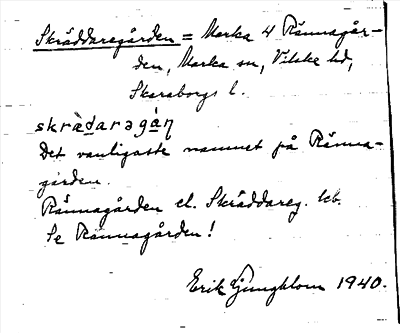 Skräddaregården = Marka 4 Rännagår-
den, Marka sn, Vilske hd,
Skaraborgs l.
skrädaragàɳ
Det vanligaste namnet på Ränna-
gården.
Rännagården el. Skräddareg. lcb.
Se Rännagården!
Erik Ljungblom 1940.